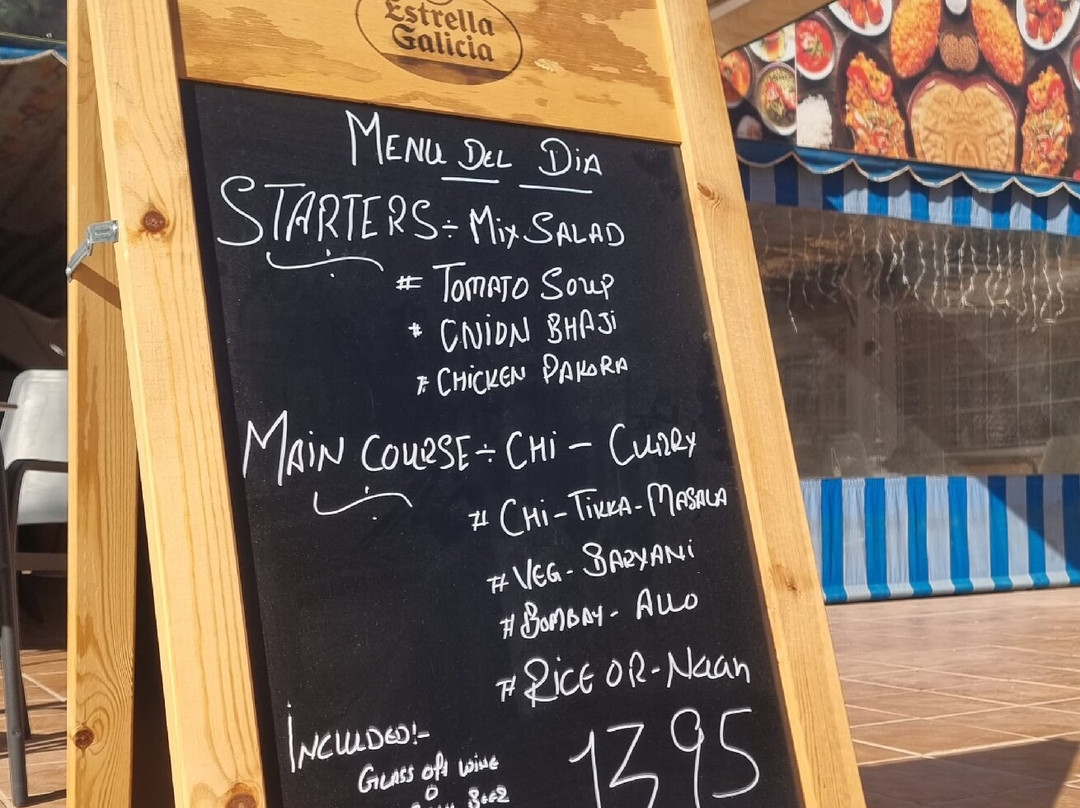 Estrella
Galicia
MENU DEL DIA
STARTERS÷ MIX SALAD
# TOMATO SOUP
* ONION BHAJI
# CHICKEN PAKORA
MAIN COURSE÷ CHI - CURRY
# CHI-TIKKA-MASALA
# VEG- BARYANI
# BOMBAY- ALLO
# RICE OR-Naan
INCLUDED!-
GLASS OF WINE
O
BEER
1395